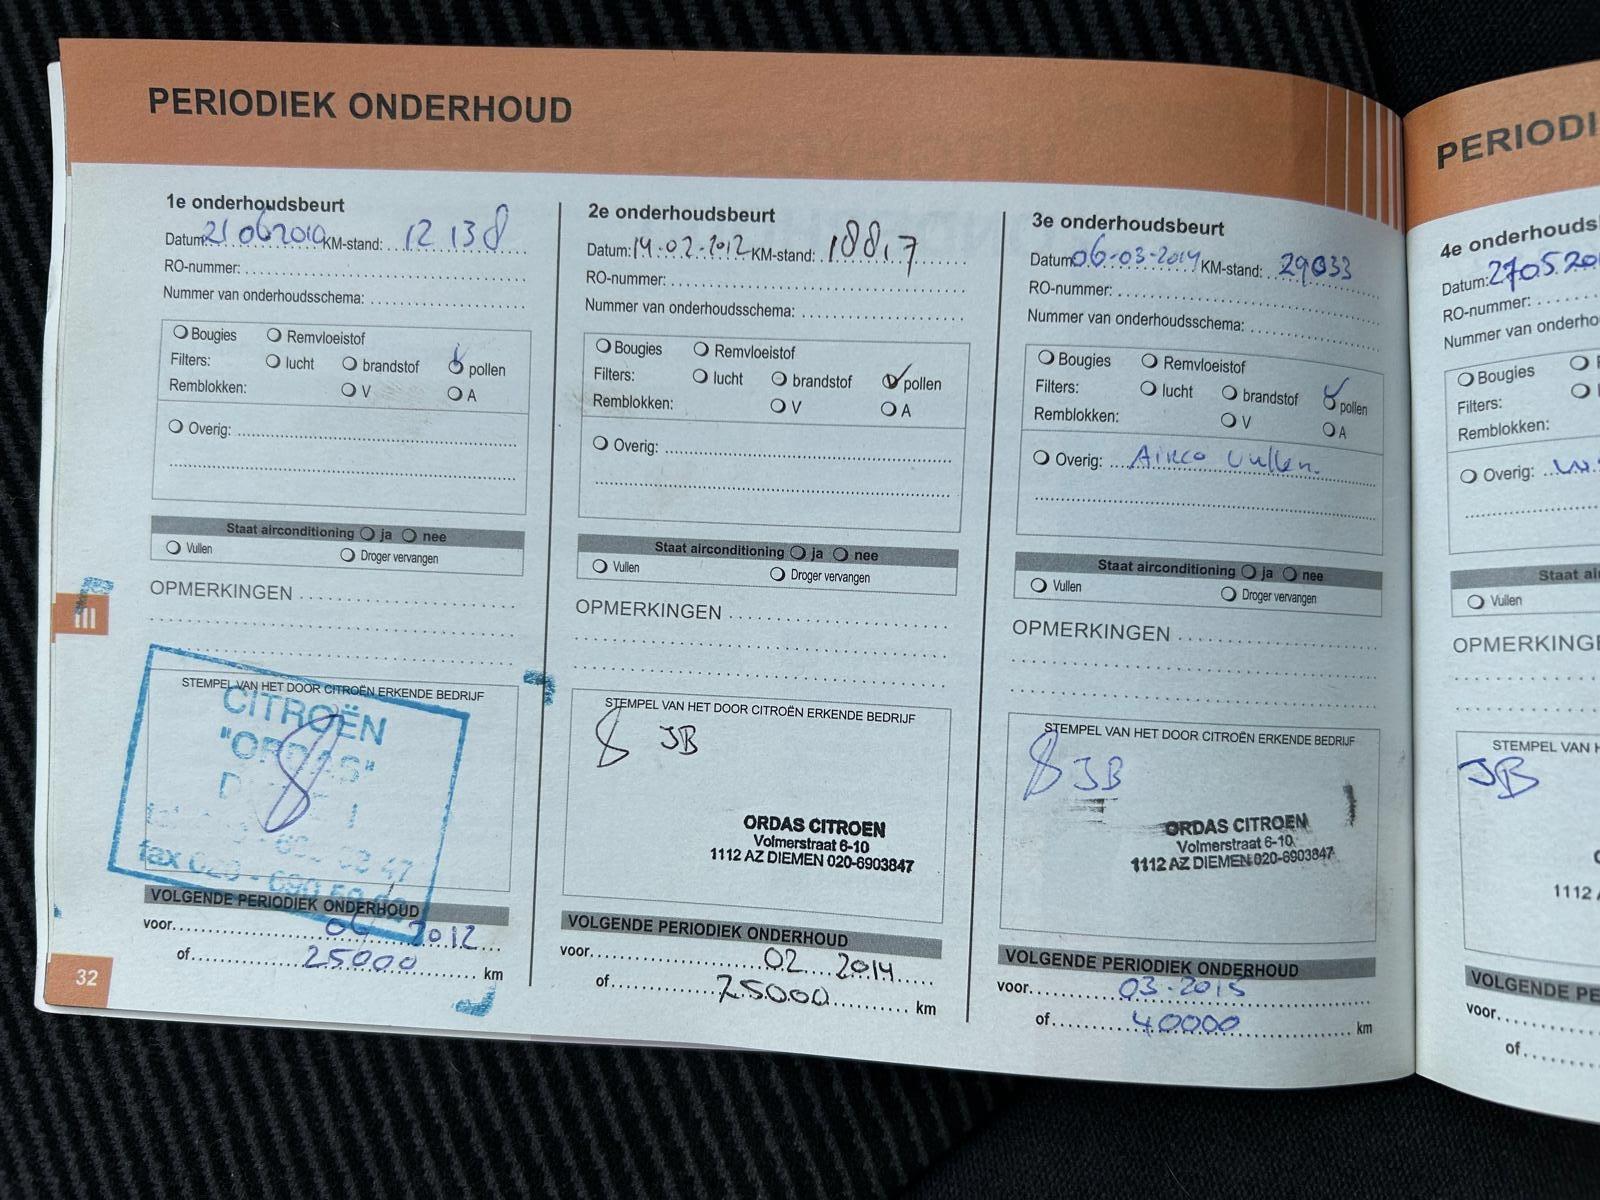 PERIODIEK ONDERHOUD
1e onderhoudsbeurt
Datum: 21 06 2010 KM-stand: 12 138
RO-nummer:
Nummer van onderhoudsschema:
Bougies Remvloeistof
Filters: lucht brandstof pollen
Remblokken: V A
Overig:
Staat airconditioning ja nee
Vullen Droger vervangen
OPMERKINGEN
STEMPEL VAN HET DOOR CITROËN ERKENDE BEDRIJF
CITROËN
"ORDAS"
fax 020 - 690
VOLGENDE PERIODIEK ONDERHOUD
voor 06 2012
of 25000 km
32
III
2e onderhoudsbeurt
Datum: 14-02-2012 KM-stand: 18817
RO-nummer:
Nummer van onderhoudsschema:
Bougies Remvloeistof
Filters: lucht brandstof pollen
Remblokken: V A
Overig:
Staat airconditioning ja nee
Vullen Droger vervangen
OPMERKINGEN
STEMPEL VAN HET DOOR CITROËN ERKENDE BEDRIJF
JB
ORDAS CITROEN
Volmerstraat 6-10
1112 AZ DIEMEN 020-6903847
VOLGENDE PERIODIEK ONDERHOUD
voor 02 2014
of 25000 km
3e onderhoudsbeurt
Datum: 06-03-2014 KM-stand: 29033
RO-nummer:
Nummer van onderhoudsschema:
Bougies Remvloeistof
Filters: lucht brandstof pollen
Remblokken: V A
Overig: Airco vullen.
Staat airconditioning ja nee
Vullen Droger vervangen
OPMERKINGEN
STEMPEL VAN HET DOOR CITROËN ERKENDE BEDRIJF
JB
ORDAS CITROEN
Volmerstraat 6-10
1112 AZ DIEMEN 020-6903847
VOLGENDE PERIODIEK ONDERHOUD
voor 03-2015
of 40000 km
PERIODI
4e onderhouds
Datum: 27.05.20
RO-nummer:
Nummer van onderho
Bougies
Filters:
Remblokken:
Overig:
Staat ai
Vullen
OPMERKING
STEMPEL VAN H
JB
1112
VOLGENDE PE
voor
of